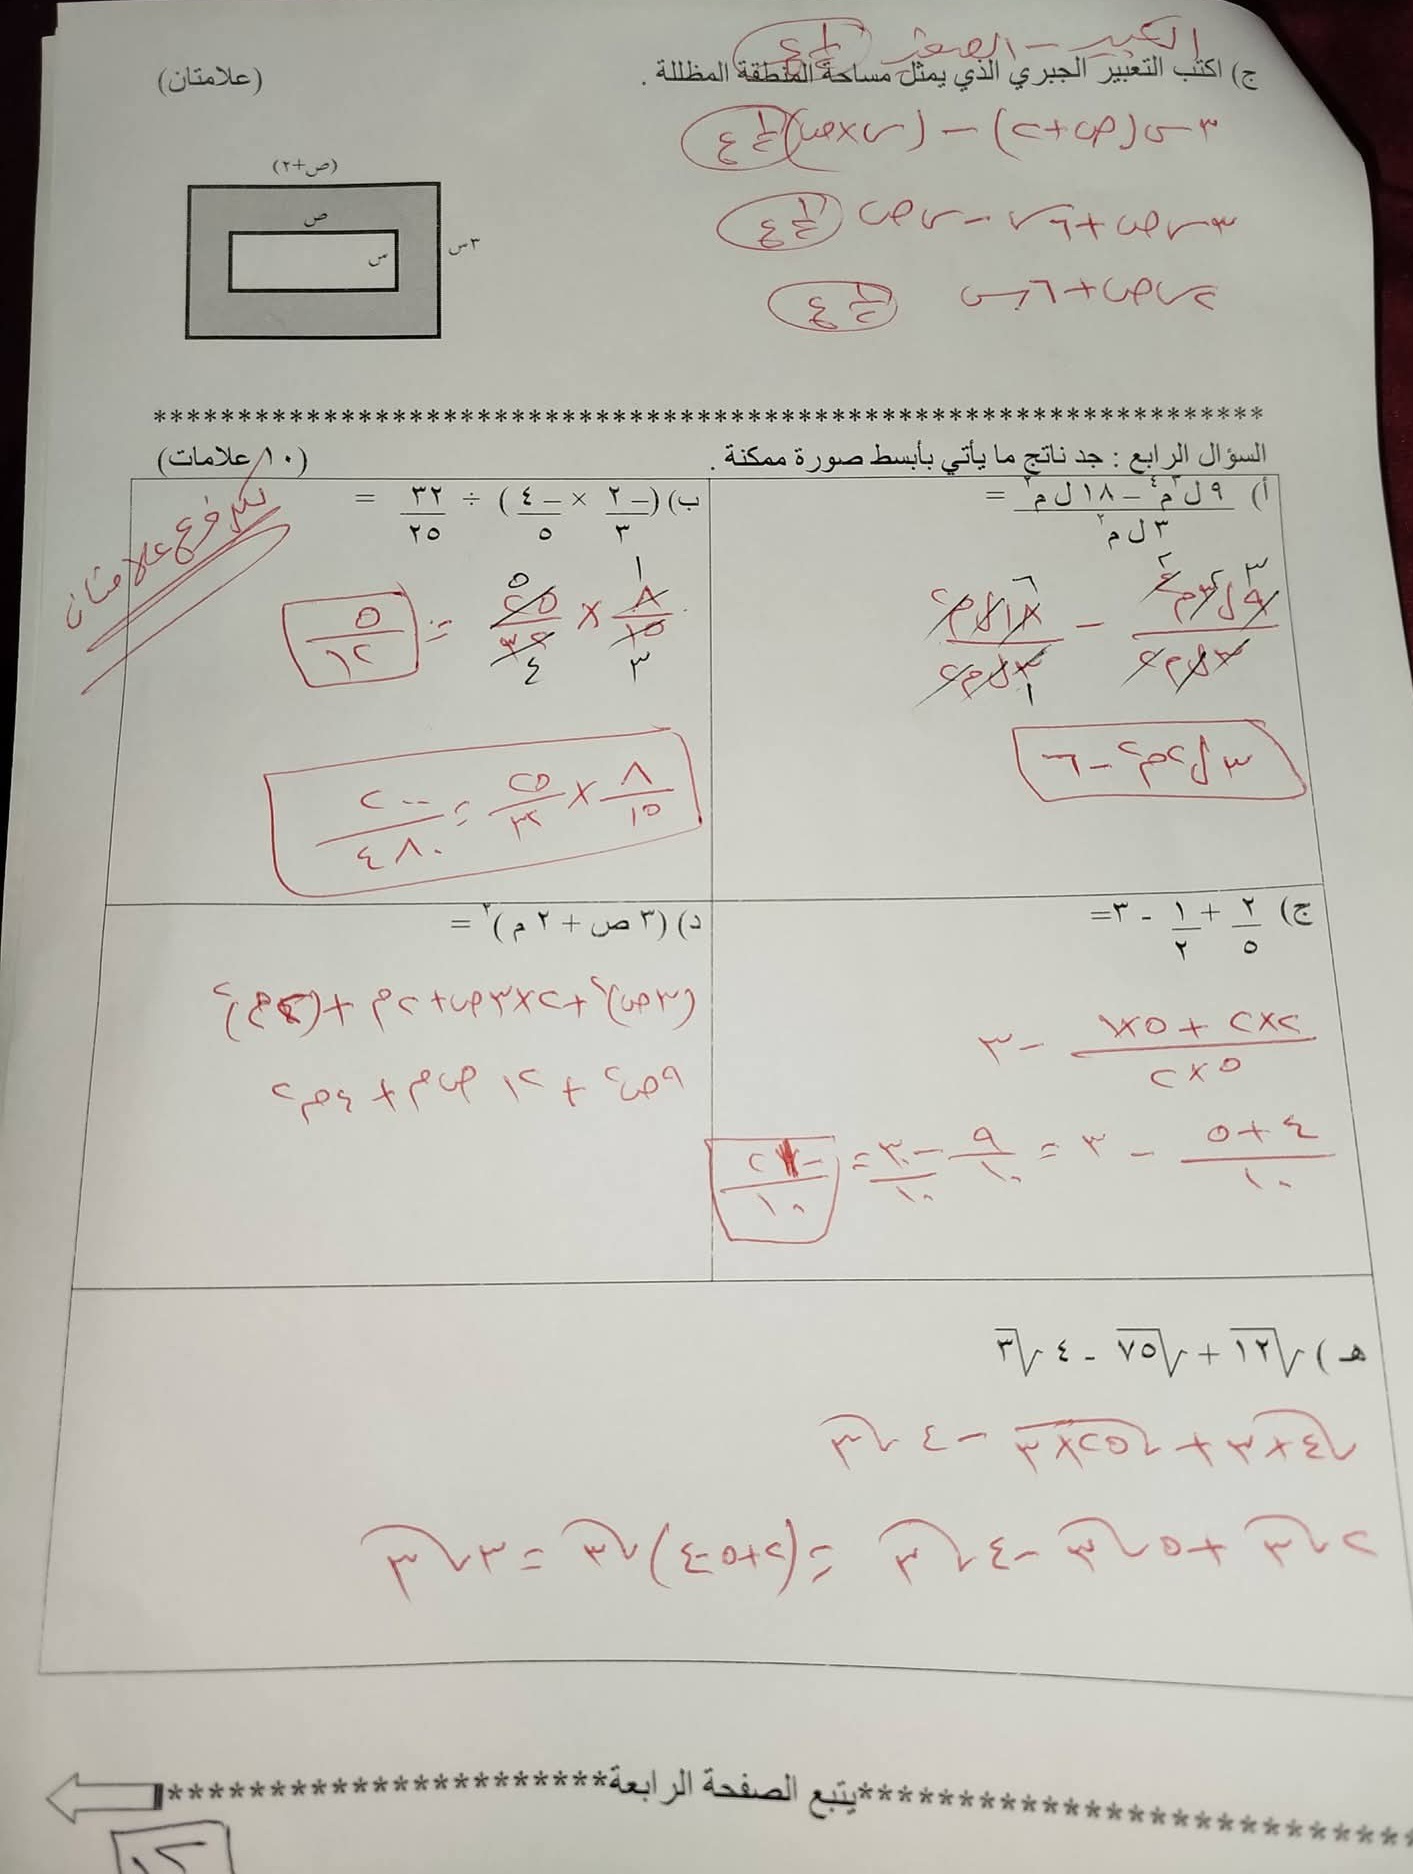 الكبير - الصغير ١/٢ ع
ج) اكتب التعبير الجبري الذي يمثل مساحة المنطقة المظللة . (علامتان)
٣س(ص+٢) - (س×ص) ١/٢ ع
(ص+٢)
ص
س
٣س
٣س ص + ٦س - س ص ١/٢ ع
٢س ص + ٦س ١/٢ ع
********************************************************************
السؤال الرابع : جد ناتج ما يأتي بأبسط صورة ممكنة . (١٠ علامات)
لكل فرع علامتان
أ) (٩ ل٣ م٤ - ١٨ ل م٢) / (٣ ل م٢) =
٩ل٣م٤ / ٣ل م٢ - ١٨ل م٢ / ٣ل م٢
٣ ل٢م٢ - ٦
ب) (-٢/٣ × -٤/٥) ÷ ٣٢/٢٥ =
٨/١٥ × ٢٥/٣٢ = ٥/١٢
٨/١٥ × ٢٥/٣٢ = ٢٠٠/٤٨٠
ج) ٢/٥ + ١/٢ - ٣=
(٢×٢ + ٥×١) / (٥×٢) - ٣
(٤+٥)/١٠ - ٣ = ٩/١٠ - ٣٠/١٠ = -٢١/١٠
د) (٣ ص + ٢ م)٢ =
(٣ص)٢ + ٢×٣ص+٢م + (٢م)٢
٩ص٢ + ١٢ ص م + ٤م٢
هـ ) √١٢ + √٧٥ - ٤√٣
√٤×٣ + √٢٥×٣ - ٤√٣
٢√٣ + ٥√٣ - ٤√٣ = (٢+٥-٤)√٣ = ٣√٣
***************************يتبع الصفحة الرابعة**********************